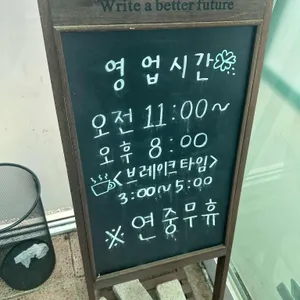 Write a better future
영업시간
오전 11:00~
오후 8:00
<브레이크타임>
3:00~5:00
※ 연중무휴